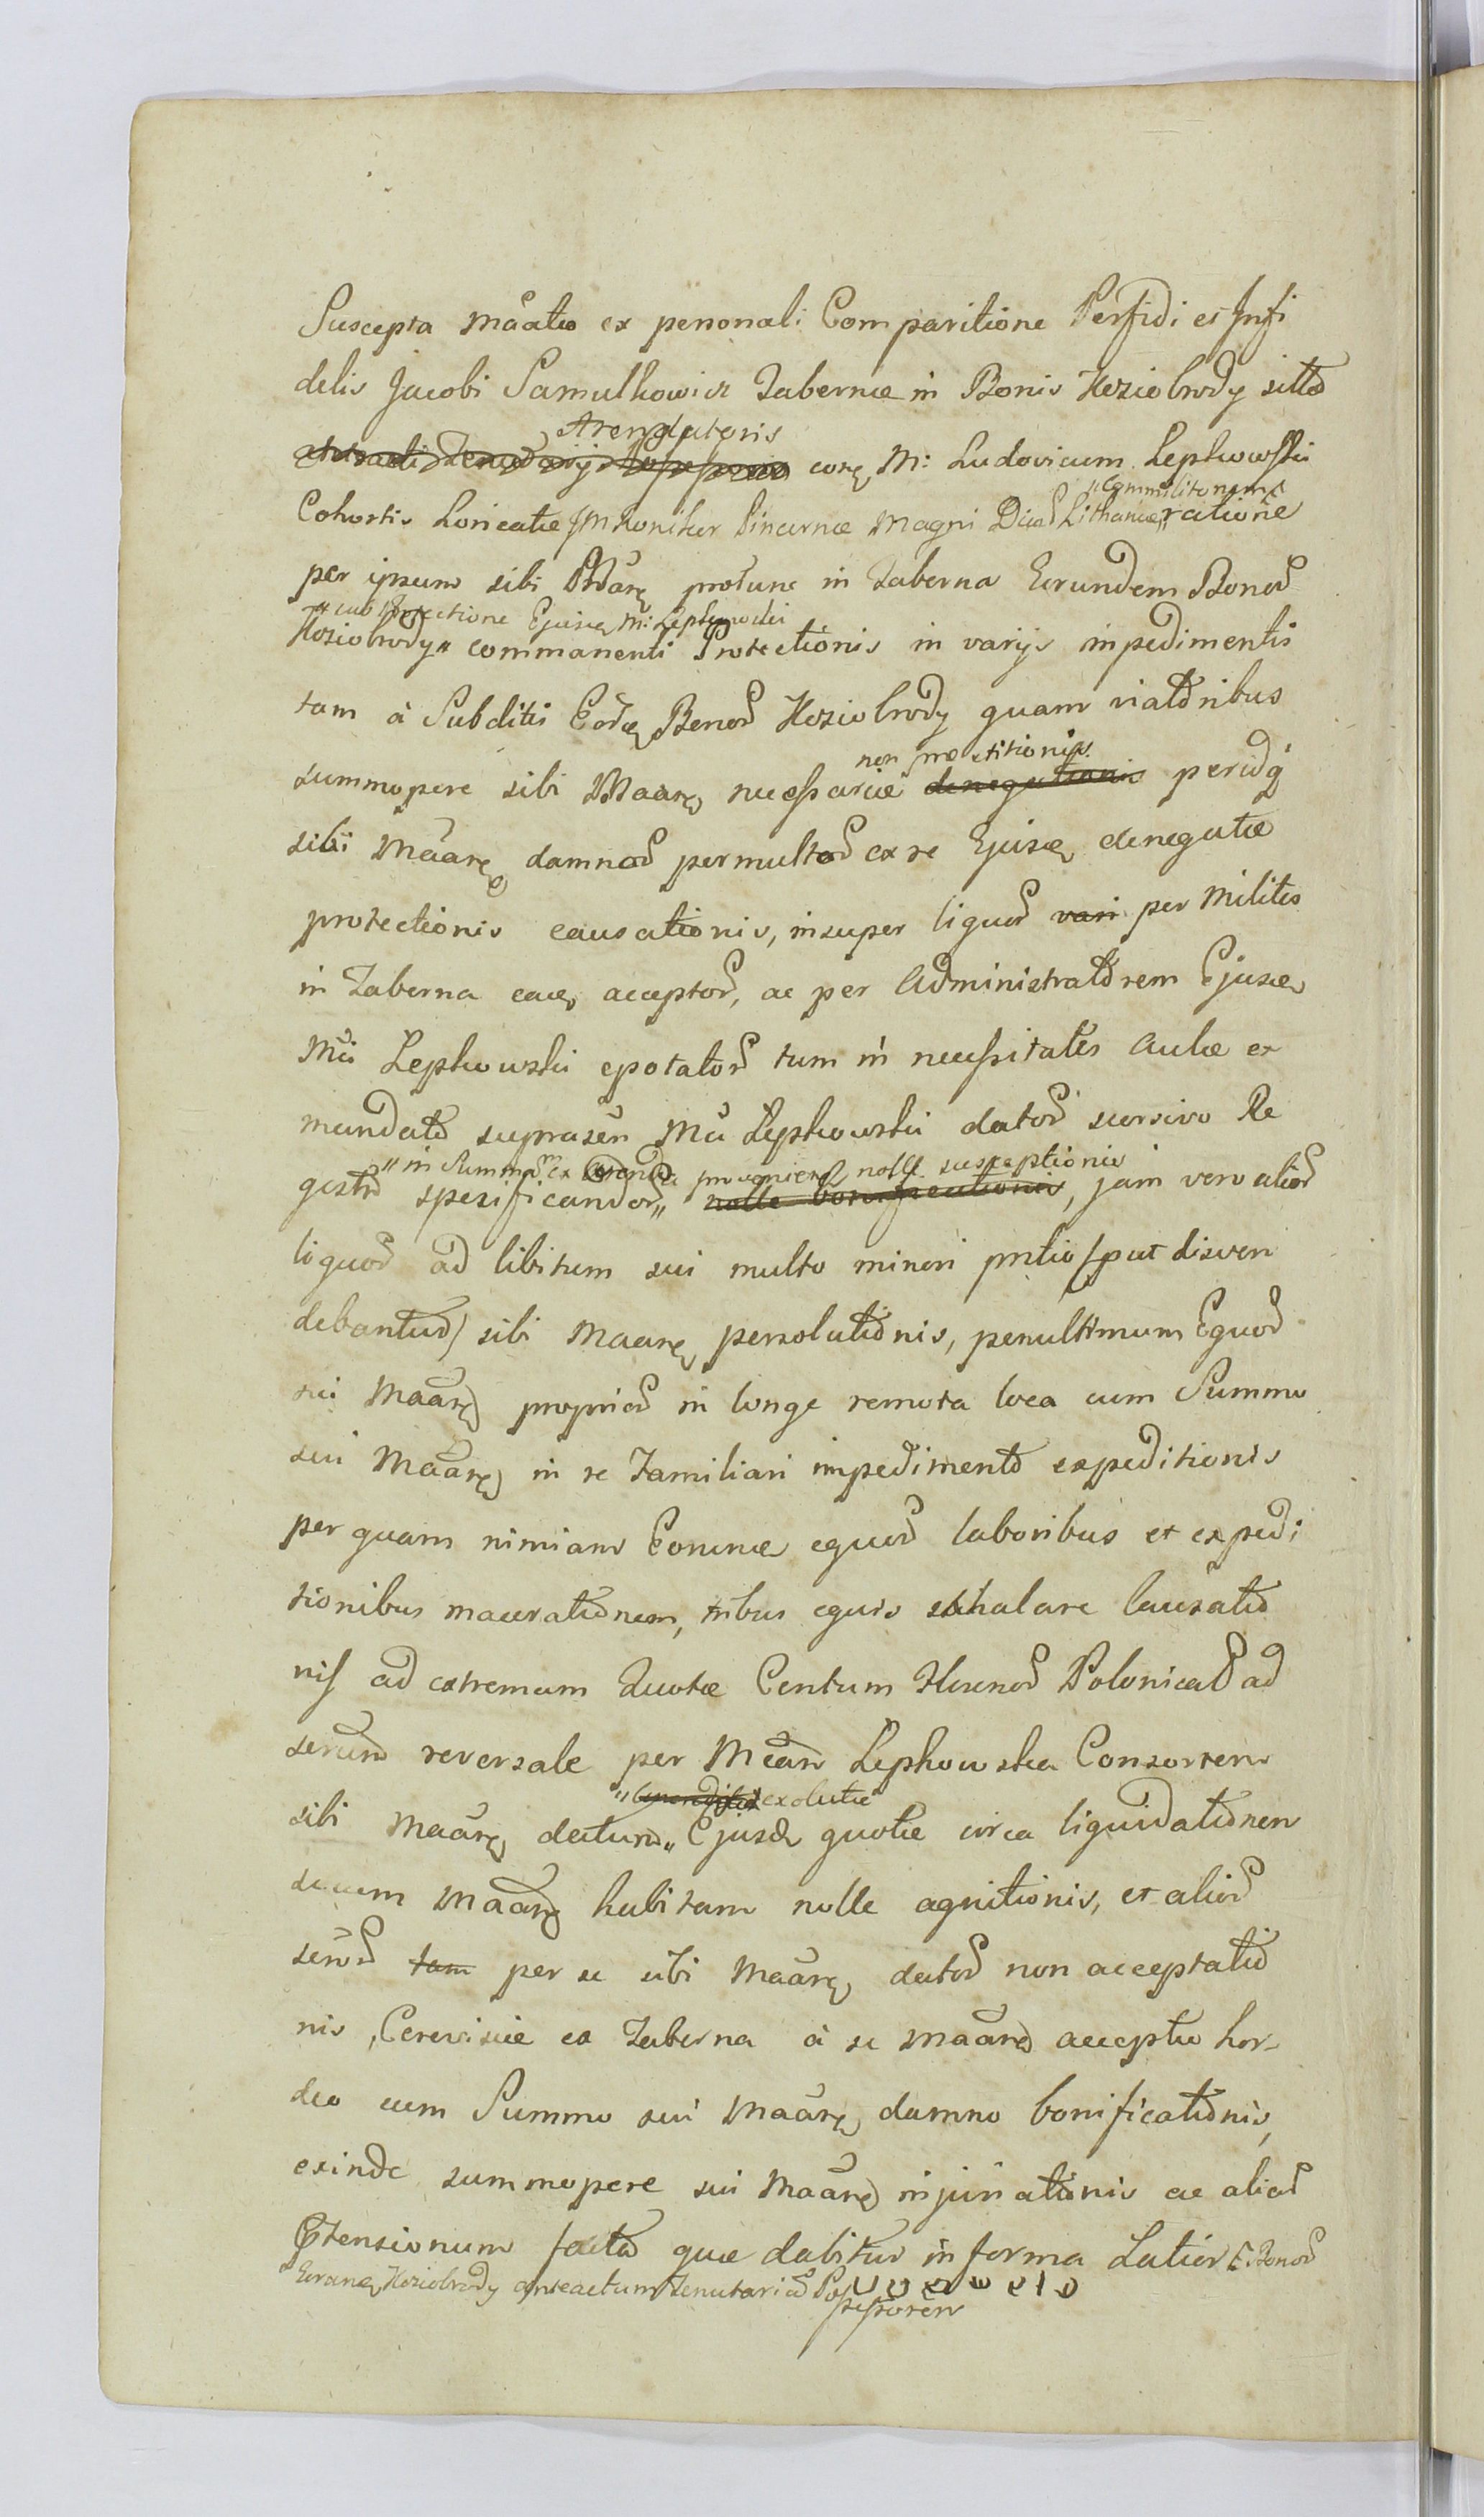 Suscepta Māātio ex personali Comparitione Perfidi et Infi
delis Jacobi Samulkowicz Tabernæ in Bonis Koziebrody sittæ
Arendatoris
corā M: Ludovicum Lepkowski
"Commilitonem"
Cohortis Loricatæ Pincernæ Magni Ducatus Lithaniæ ratione
per ipsum sibi Māārē protunc in Taberna Eorundem Bonor
"sub Protectione Ejusd M: Lepkowski
Koziebrody" commanenti Protectionis in varijs impedimentis
tam à Subditis Eord Bonor Koziebrody quam viatoribus
non præstitionis
summopere sibi Māārē necessariæ denegationis peridq
sibi Māārē damnor permultor ex re Ejusd denegatæ
protectionis causationis, insuper liquor vari per Milites
in Taberna ead acceptor, ac per Administratorem Ejusd
Mci Lepkowski epotator tum in necessitates Aulæ ex
mandato suprascr Mci Lepkowski dator scorsivo Re
"in Summam ex Arenda provenien nolle susceptionis
gestro spezificandor" nolle bonificationis, jam vero alior
liquor ad libitum sui multo minori pretio /put disven
debantur/ sibi Māārē persolutionis, penultimum Equor
sui Māārē proprior in longe remota loca cum Summo
sui Māārē in re Familiari impedimento expeditionis
per quam nimiam Eorund equor laboribus et expedi
tionibus macerationem, tribus equis exhalare causatio
nis ad extremum Quotæ Centum Florenor Polonical ad
serum reversale per Mcam Lepkowska Consortem
exolutæ
sibi Māārē datum" Ejusd quotæ circa liquidationem
secum Māārē habitam nolle agnitionis, et alior
senor tam per se sibi Māārē dator non acceptatio
nis, Cerevisiæ ex Taberna à se Māārē acceptæ hor-
deo cum Summo sui Māārē damno bonificationis,
exinde summopere sui Māārē injuriationis ac alior
Ptensionum facta quæ dabitur in forma Latiori Bonor
Eorund Koziebrody anteactum Tenutariū Pos
sessorem